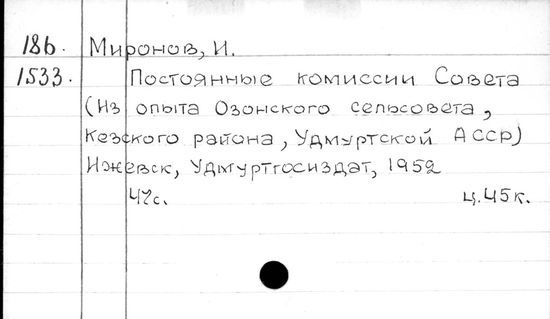 186. Миронов, И.
1533. Постоянные комиссии Совета
(Из опыта Озонского сельсовета,
Кезского района, Удмуртской АССР)
Ижевск, Удмуртгосиздат, 1952
47с. ц.45к.